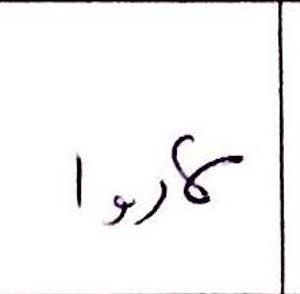 کاروا